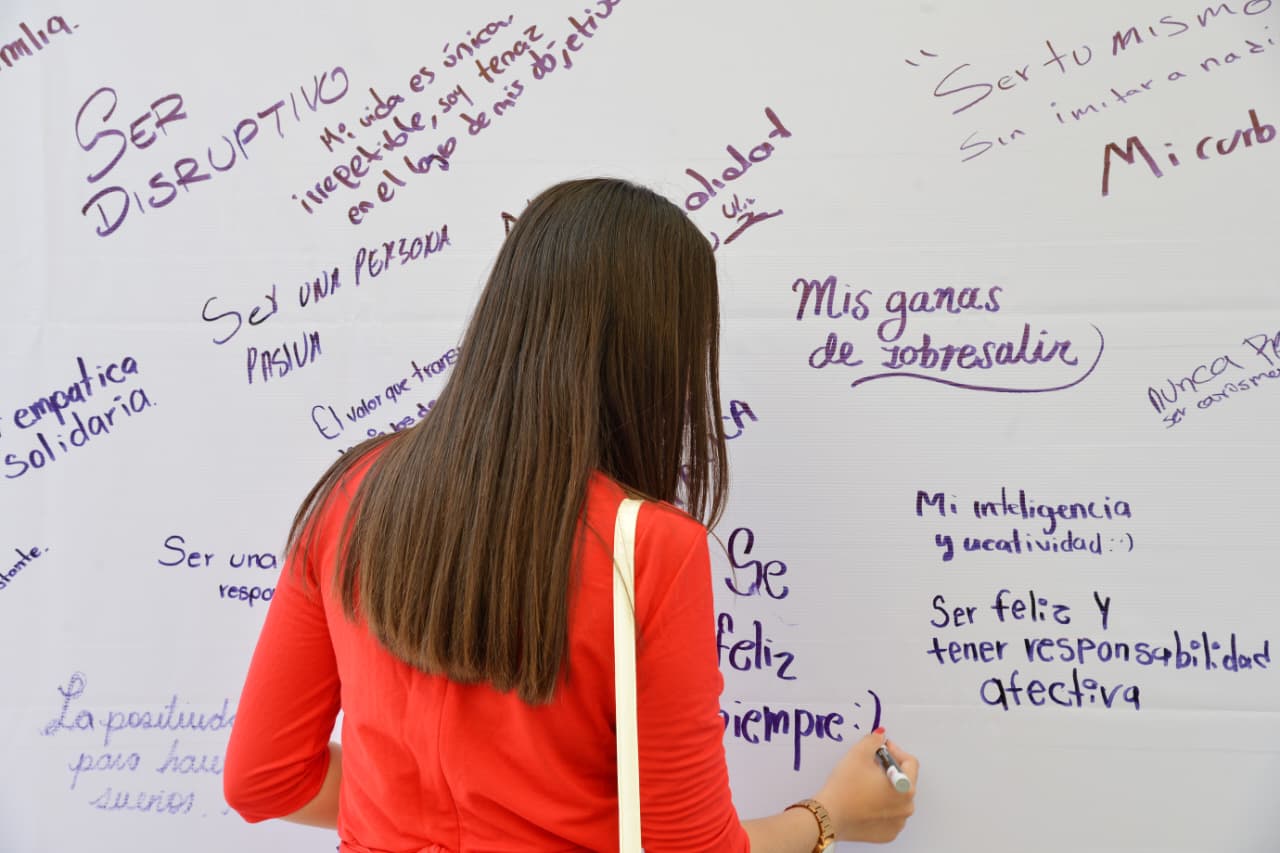 SER
DISRUPTIVO
Mi vida es única
irrepetible, soy tenaz
en el logro de mis objetivo
"Ser tu mismo
sin imitar a nadi
Mi curb
SER UNA PERSONA
PASIVA
Mis ganas
de sobresalir
El valor que trans
nunca
empatica
solidaria.
Mi inteligencia
y creatividad :)
Ser una
respo
Se
feliz
siempre :)
Ser feliz y
tener responsabilidad
afectiva
La positivid
para hace
sueños.